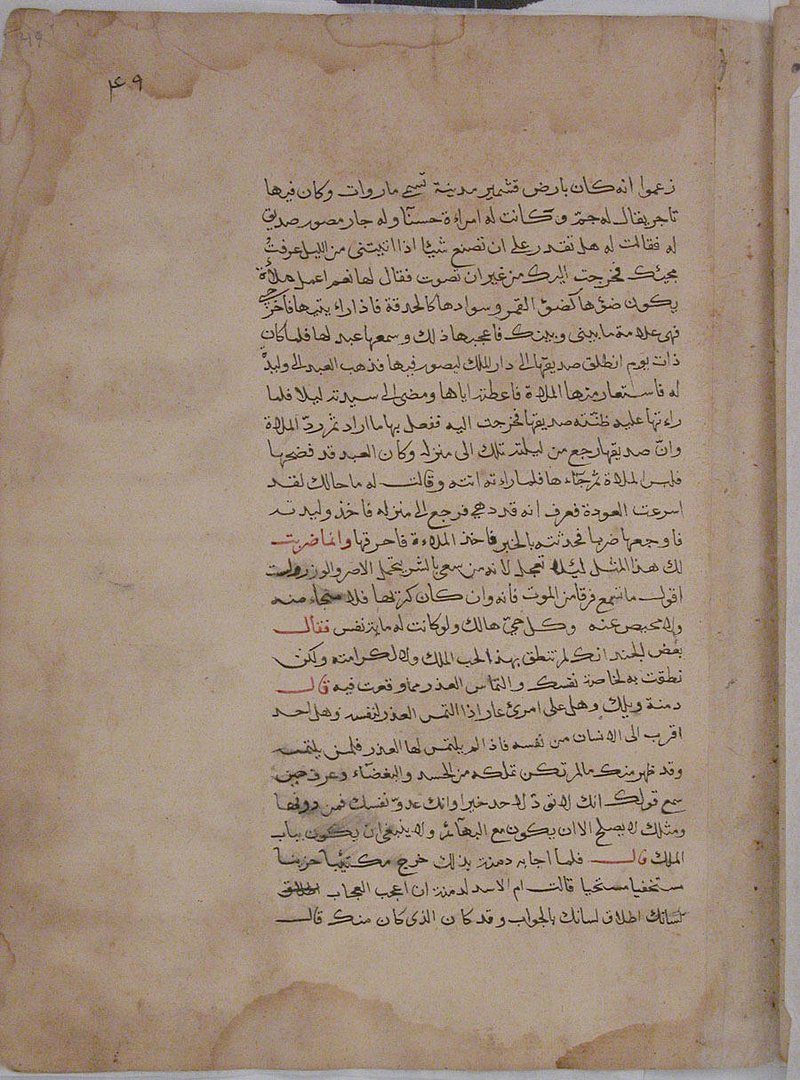 ٤٩
زعموا انه كان بارض قشمير مدينة تسمى ماروات وكان فيها
تاجر يقال له وكانت له امراءة حسنآ وله جار مصور صديق
له فقالت له هل تقدر على ان تصنع شيئا اذا اتيتنى من الليل عرفت
مجيئك فخرجت اليك من غير ان تصوت فقال لها نعم اعمل ملأة
يكون ضؤها كضؤ القمر وسوادها كالحدقة فاذا راءيتيها فاخرجى
فهى علامة ما بينى وبينك فاعجبها ذلك وسمعها عبد لها فلما كان
ذات يوم انطلق صديقها الى دار الملك ليصور فيها فذهب العبد الى وليدة
له فاستعار منها الملاة فاعطته اياها ومضى الى سيدته ليلا فلما
راءتها عليه ظنته صديقها فخرجت اليه ففعل بها ما اراد ثم رد الملاة
وان صديقها رجع من ليلته تلك الى منزله وكان العبد قد فضحها
فلبس الملاة ثم جآءها فلما راءته اتته وقالت له ما حالك لقد
اسرعت العودة فعرف انه قد دهى فرجع الى منزله فاخذ وليدته
فاوجعها ضربا فحدثته بالخبر فاخذ الملاءة فاحرقها وانما ضربت
لك هذا المثل ليلا تعجل لانه من سعى بالشر الاصر والوزر ولست
اقول ما تسمع فرقا من الموت فانه وان كان كريها فلا منجاء منه
ولا محيص عنه وكل حى هالك ولو كانت له ماية نفس فقال
بعض الجند انك لم تنطق بهذا لحب الملك ولا لكرامته ولكن
نطقت به لخاصة نفسك والتماس العذر مما وقعت فيه قال
دمنة ويلك وهل على امرئ عار اذا التمس العذر لنفسه وهل احد
اقرب الى الانسان من نفسه فاذا لم يلتمس لها العذر فلمن يلتمسه
وقد ظهر منك ما لم تكن تملكه من الحسد والبغضآء وعرف حين
سمع قولك انك لا تود لاحد خيرا وانك عدو نفسك فمن دونها
ومثلك لا يصلح الا ان يكون مع البهآئم ولا ينبغى ان يكون بباب
الملك قال فلما اجابه دمنة بذلك خرج مكتئبا حزينا
مستخفيا مستحيا قالت ام الاسد لدمنة ان اعجب العجاب
لسانك اطلاق لسانك بالجواب وقد كان الذى كان منك قال